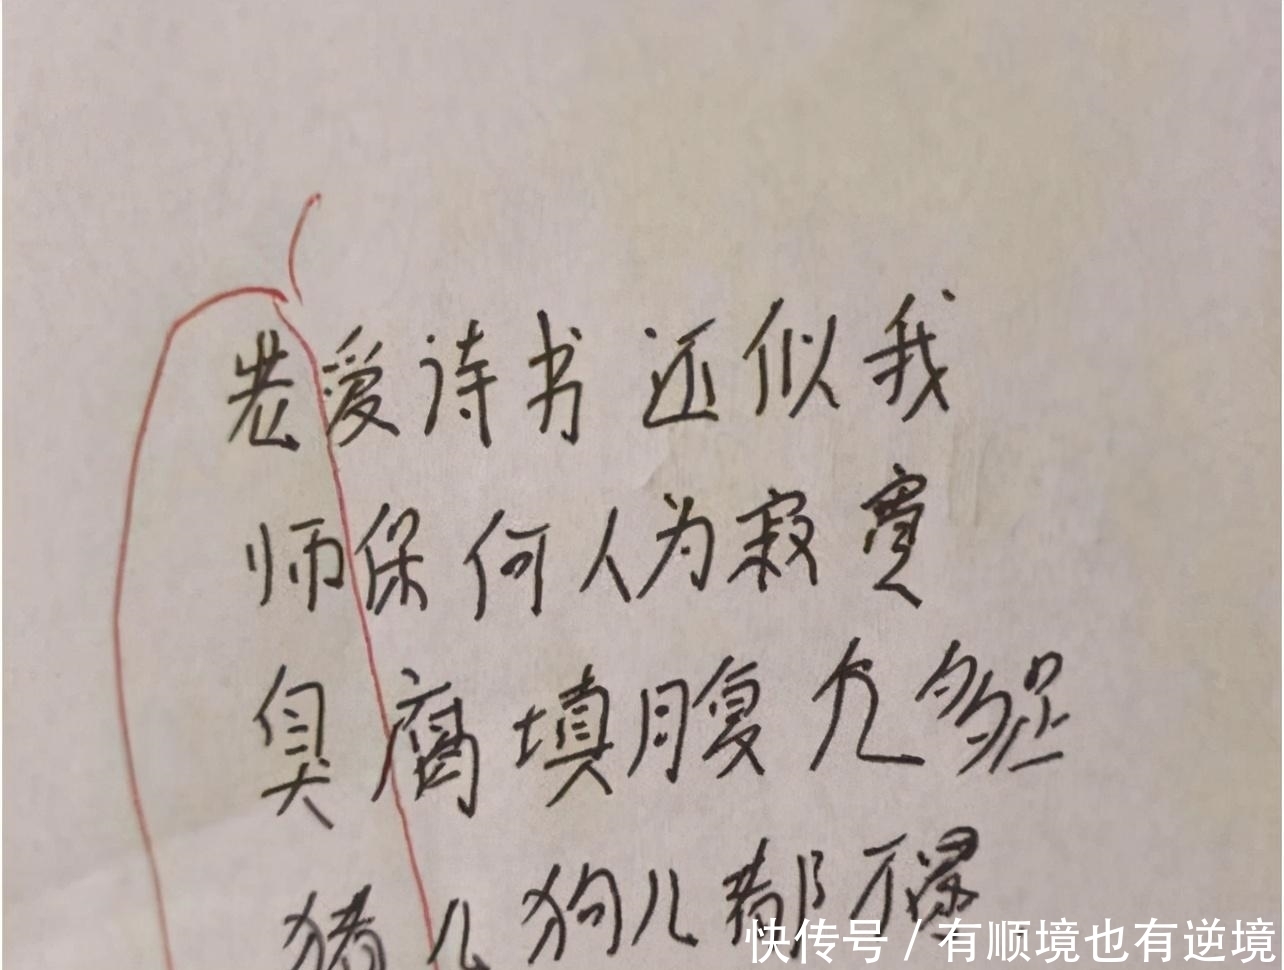 老爱诗书还似我
师保何人为寂寞
臭腐填腹凡多
猪儿狗儿都不
快传号 / 有顺境也有逆境